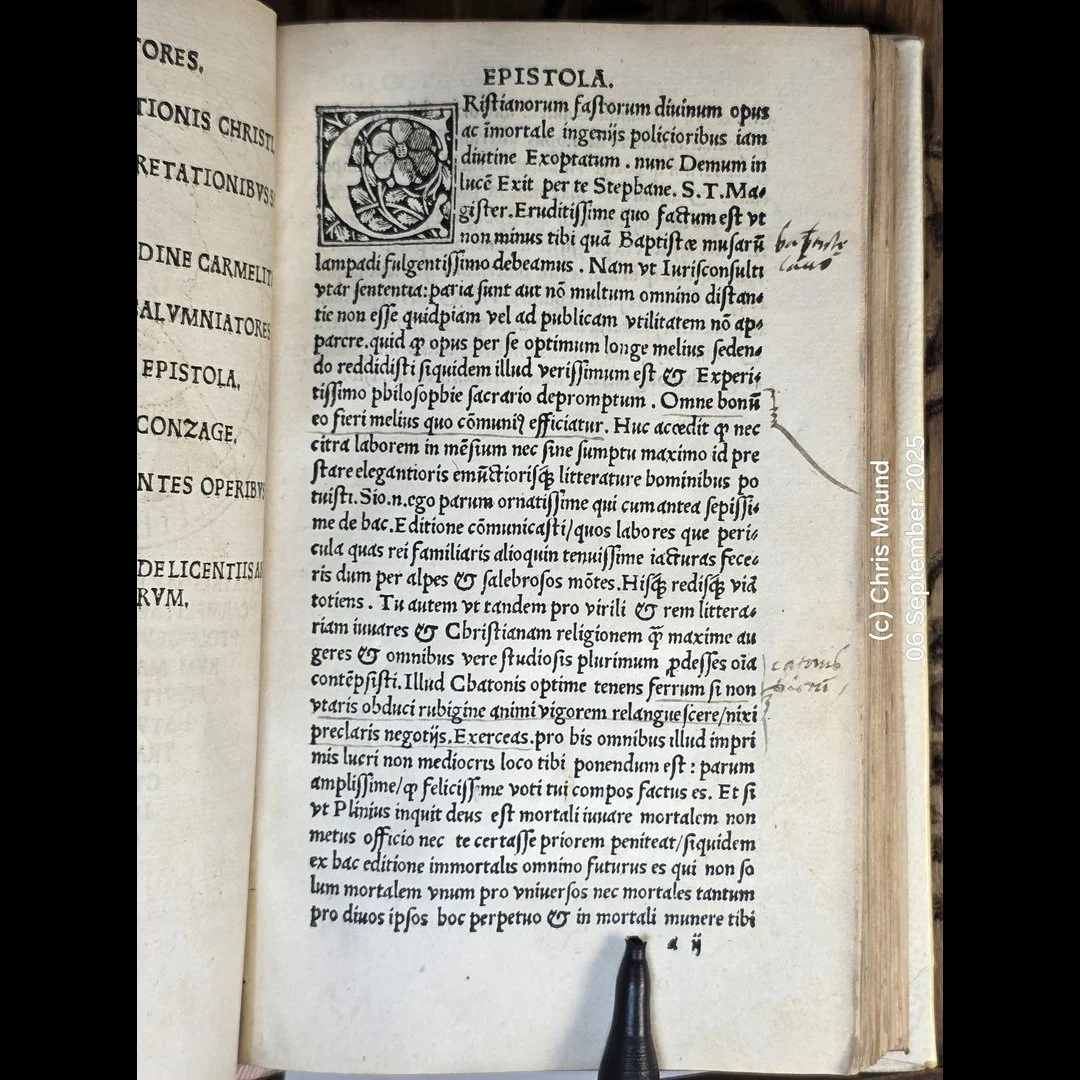 TORES.
TIONIS CHRISTI
RETATIONIBVS S
DINE CARMELIT
ALVMNIATORES
EPISTOLA.
GONZAGE,
NTES OPERIBVS
DE LICENTIIS A
RVM,
EPISTOLA.
CRistianorum fastorum diuinum opus
ac īmortale ingenijs policioribus iam
diutine Exoptatum . nunc Demum in
lucē Exit per te Stephane. S.T.Ma⸗
gister.Eruditissime quo factum est vt
non minus tibi quā Baptistæ musarū
lampadi fulgentissimo debeamus . Nam vt Iurisconsulti
vtar sententia:paria sunt aut nō multum omnino distan⸗
tie non esse quidpiam vel ad publicam vtilitatem nō ap⸗
parere.quid ꝙ opus per se optimum longe melius seden⸗
do reddidisti siquidem illud verissimum est & Experi⸗
tissimo philosophie sacrario depromptum . Omne bonū
eo fieri melius quo cōmuniꝰ efficiatur. Huc accedit ꝙ nec
citra laborem in mēsium nec sine sumptu maximo id pre
stare elegantioris emūctiorisq̃ litterature hominibus po
tuisti. Sio.n.ego parum ornatissime qui cum antea sepissi⸗
me de hac.Editione cōmunicasti/quos labores que peri⸗
cula quas rei familiaris alioquin tenuissime iacturas fece⸗
ris dum per alpes & salebrosos mōtes.Hisq̃ redisq̃ viā
totiens . Tu autem vt tandem pro virili & rem littera⸗
riam iuuares & Christianam religionem q̃ maxime au
geres & omnibus vere studiosis plurimum ꝓdesses oīa
contēpsisti.Illud Chatonis optime tenens ferrum si non
vtaris obduci rubigine animi vigorem relanguescere/nixi
preclaris negotijs.Exerceas.pro his omnibus illud impri
mis lucri non mediocris loco tibi ponendum est : parum
amplissime/ꝙ feliciss me voti tui compos factus es. Et si
vt Plinius inquit deus est mortali iuuare mortalem non
metus officio nec te certasse priorem peniteat/siquidem
ex hac editione immortalis omnino futurus es qui non so
lum mortalem vnum pro vniuersos nec mortales tantum
pro diuos ipsos hoc perpetuo & in mortali munere tibi
a ij
catonis
(c) Chris Maund
06 September 2025